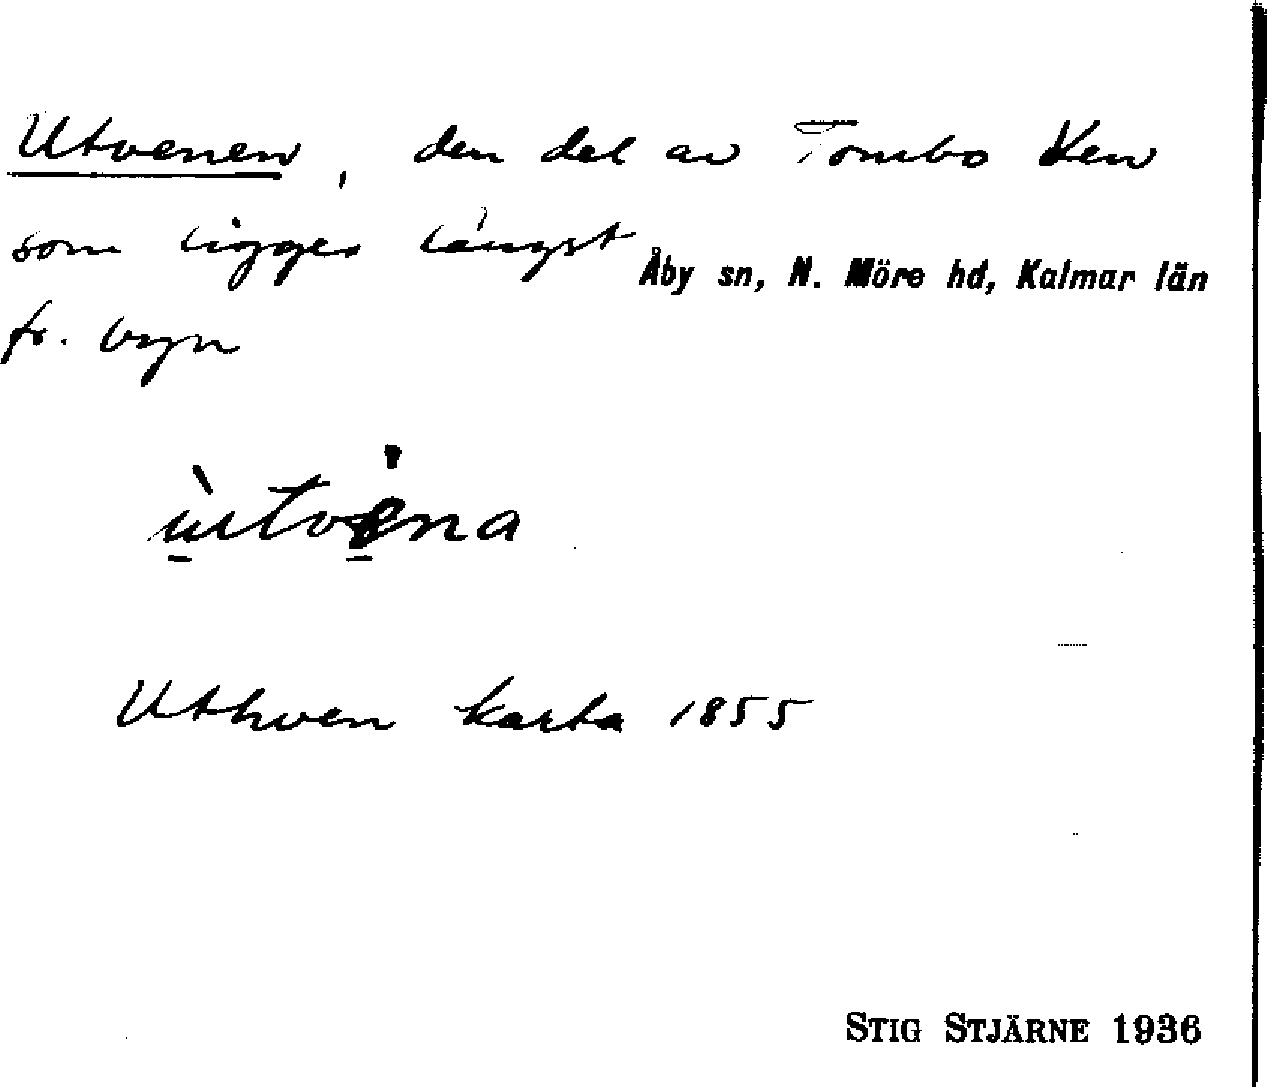 Utvenen, den del av Tombo Ven
som ligger längst
Åby sn, N. Möre hd, Kalmar län
fr. byn
ùtvèna
Uthven karta 1855
STIG STJÄRNE 1936